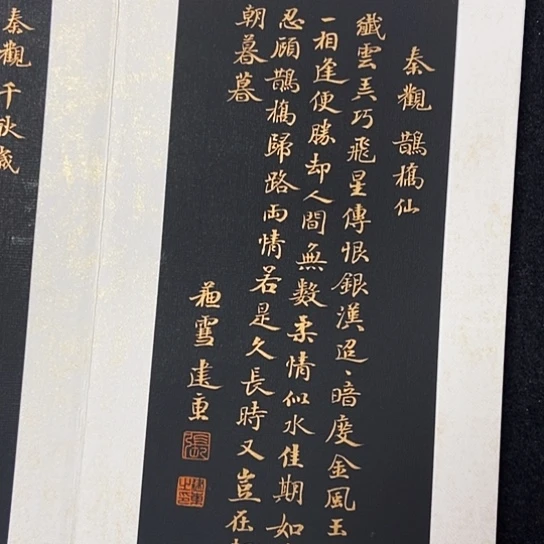 秦觀 鵲橋仙
纖雲弄巧飛星傳恨銀漢迢、暗度金風玉
一相逢便勝却人間無數柔情似水佳期如
忍顧鵲橋歸路兩情若是久長時又豈在
朝暮暮
雪建
張
秦觀 千秋歲